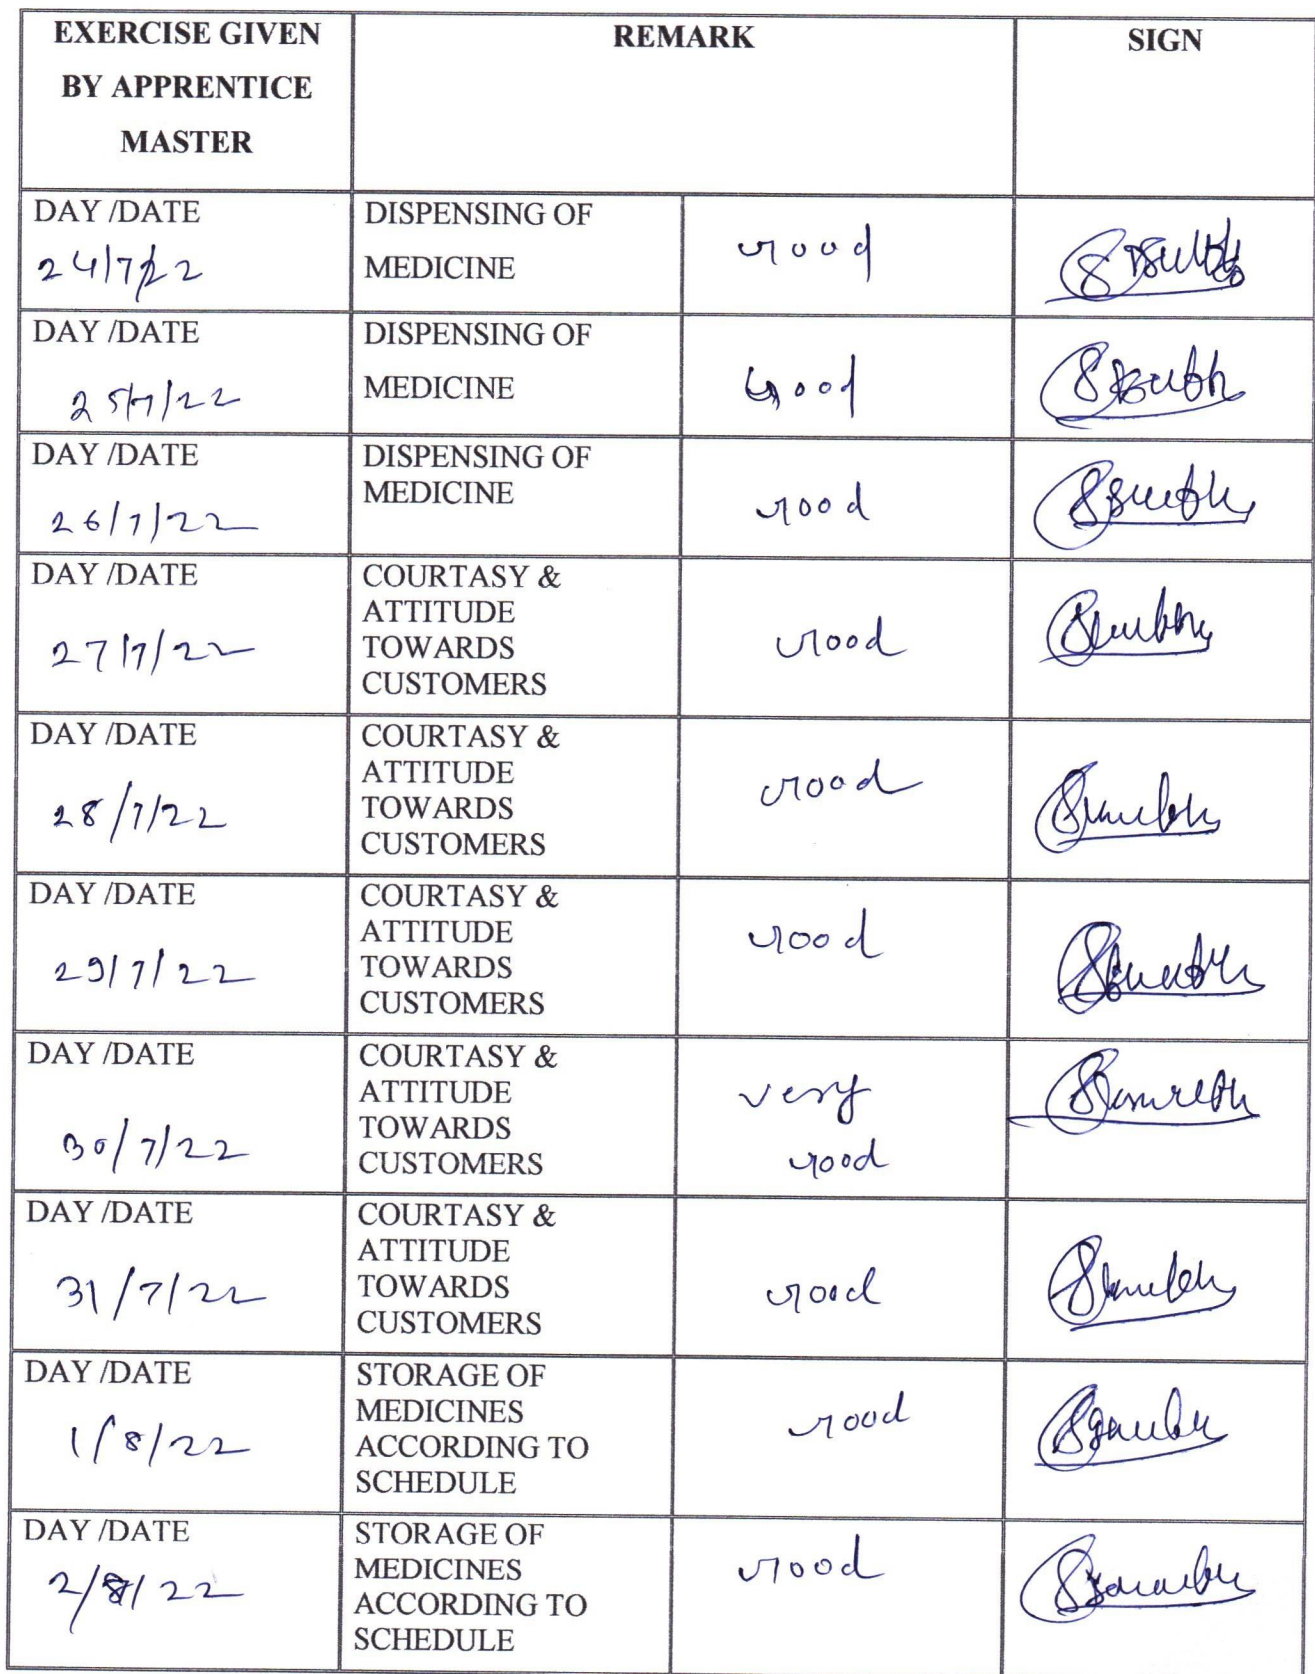 EXERCISE GIVEN
BY APPRENTICE
MASTER
REMARK
SIGN
DAY /DATE
24/7/22
DISPENSING OF
MEDICINE
Good
DAY /DATE
25/7/22
DISPENSING OF
MEDICINE
Good
DAY /DATE
26/7/22
DISPENSING OF
MEDICINE
Good
DAY /DATE
27/7/22
COURTASY &
ATTITUDE
TOWARDS
CUSTOMERS
Good
DAY /DATE
28/7/22
COURTASY &
ATTITUDE
TOWARDS
CUSTOMERS
Good
DAY /DATE
29/7/22
COURTASY &
ATTITUDE
TOWARDS
CUSTOMERS
Good
DAY /DATE
30/7/22
COURTASY &
ATTITUDE
TOWARDS
CUSTOMERS
very
Good
DAY /DATE
31/7/22
COURTASY &
ATTITUDE
TOWARDS
CUSTOMERS
Good
DAY /DATE
1/8/22
STORAGE OF
MEDICINES
ACCORDING TO
SCHEDULE
Good
DAY /DATE
2/8/22
STORAGE OF
MEDICINES
ACCORDING TO
SCHEDULE
Good